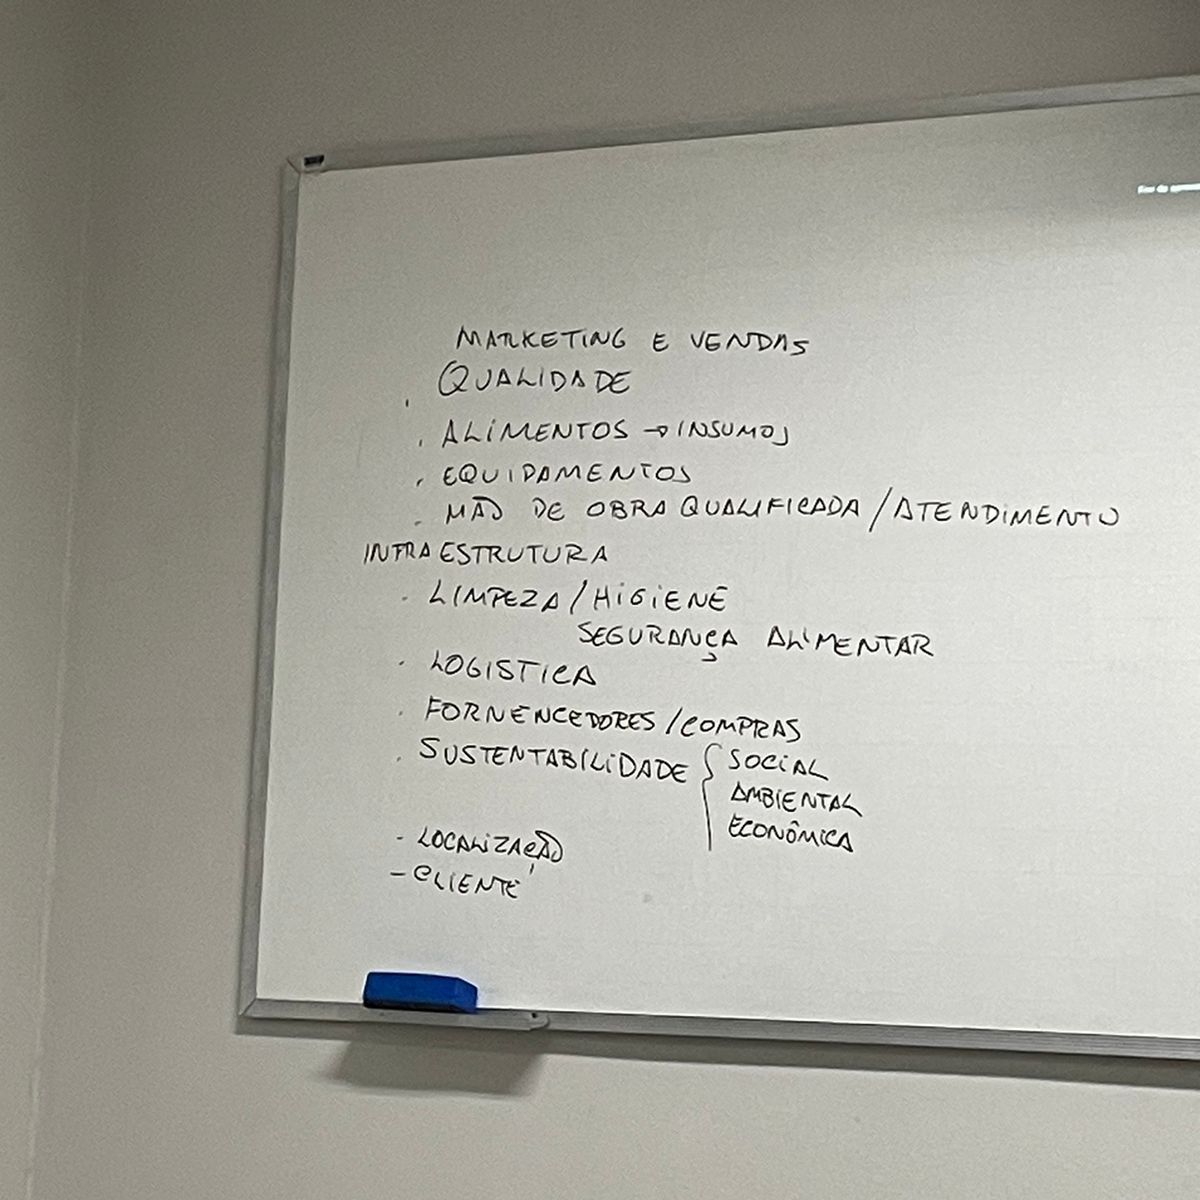 MARKETING E VENDAS
. QUALIDADE
. ALIMENTOS → INSUMOS
. EQUIPAMENTOS
. MÃO DE OBRA QUALIFICADA / ATENDIMENTO
INFRAESTRUTURA
. LIMPEZA / HIGIENE
SEGURANÇA ALIMENTAR
. LOGISTICA
. FORNENCEDORES / COMPRAS
. SUSTENTABILIDADE { SOCIAL
AMBIENTAL
ECONÔMICA
- LOCALIZAÇÃO
- CLIENTE